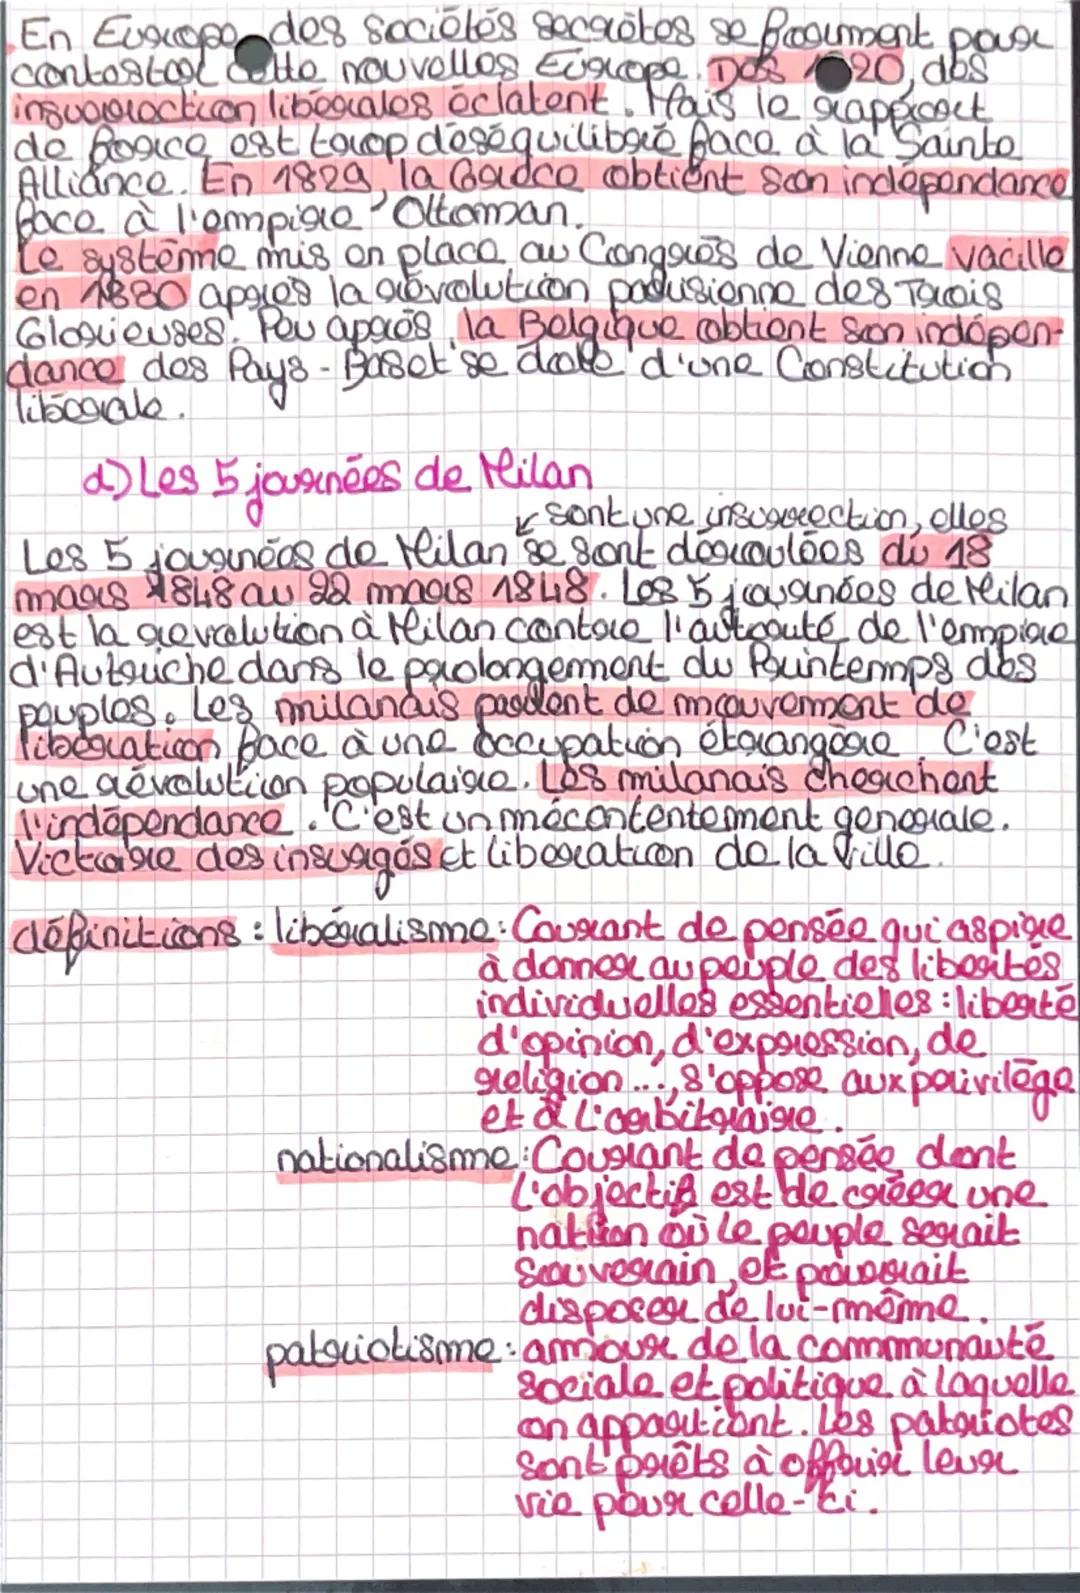 En Europe, des sociétés secrètes se forment pour
contester cette nouvelles Europe. Dès 1820, des
insurrection libérales éclatent. Mais le rapport
de force est trop déséquilibré face à la Sainte
Alliance. En 1829, la Grèce obtient son indépendance
face à l'empire Ottoman.
Le système mis en place au Congrès de Vienne vacille
en 1830 après la révolution parisienne des Trois
Glorieuses. Peu après, la Belgique obtient son indépen-
dance des Pays-Baset se dote d'une Constitution
libérale.
d) Les 5 journées de Milan
sont une insurrection, elles
Les 5 journées de Milan se sont déroulées du 18
mars 1848 au 22 mars 1848. Les 5 journées de Milan
est la revolution à Milan contre l'autorité de l'empire
d'Autriche dans le prolongement du Printemps des
peuples. Les milanais parlent de mouvement de
libération face à une occupation étrangère C'est
une révolution populaire. Les milanais cherchent
l'indépendance. C'est un mécontentement generale.
Victoire des insurgés et liberation de la ville.
définitions : libéralisme : Courant de pensée qui aspire
à donner au peuple des libertés
individuelles essentielles : liberté
d'opinion, d'expression, de
religion ..., s'oppose aux privilège
et à l'arbitraire.
nationalisme : Courant de pensée dont
l'objectif est de créer une
nation où le peuple serait
souverain, et pourrait
disposer de lui-même.
patriotisme : amour de la communauté
sociale et politique à laquelle
on appartient. Les patriotes
sont prêts à offrir leur
vie pour celle-ci.